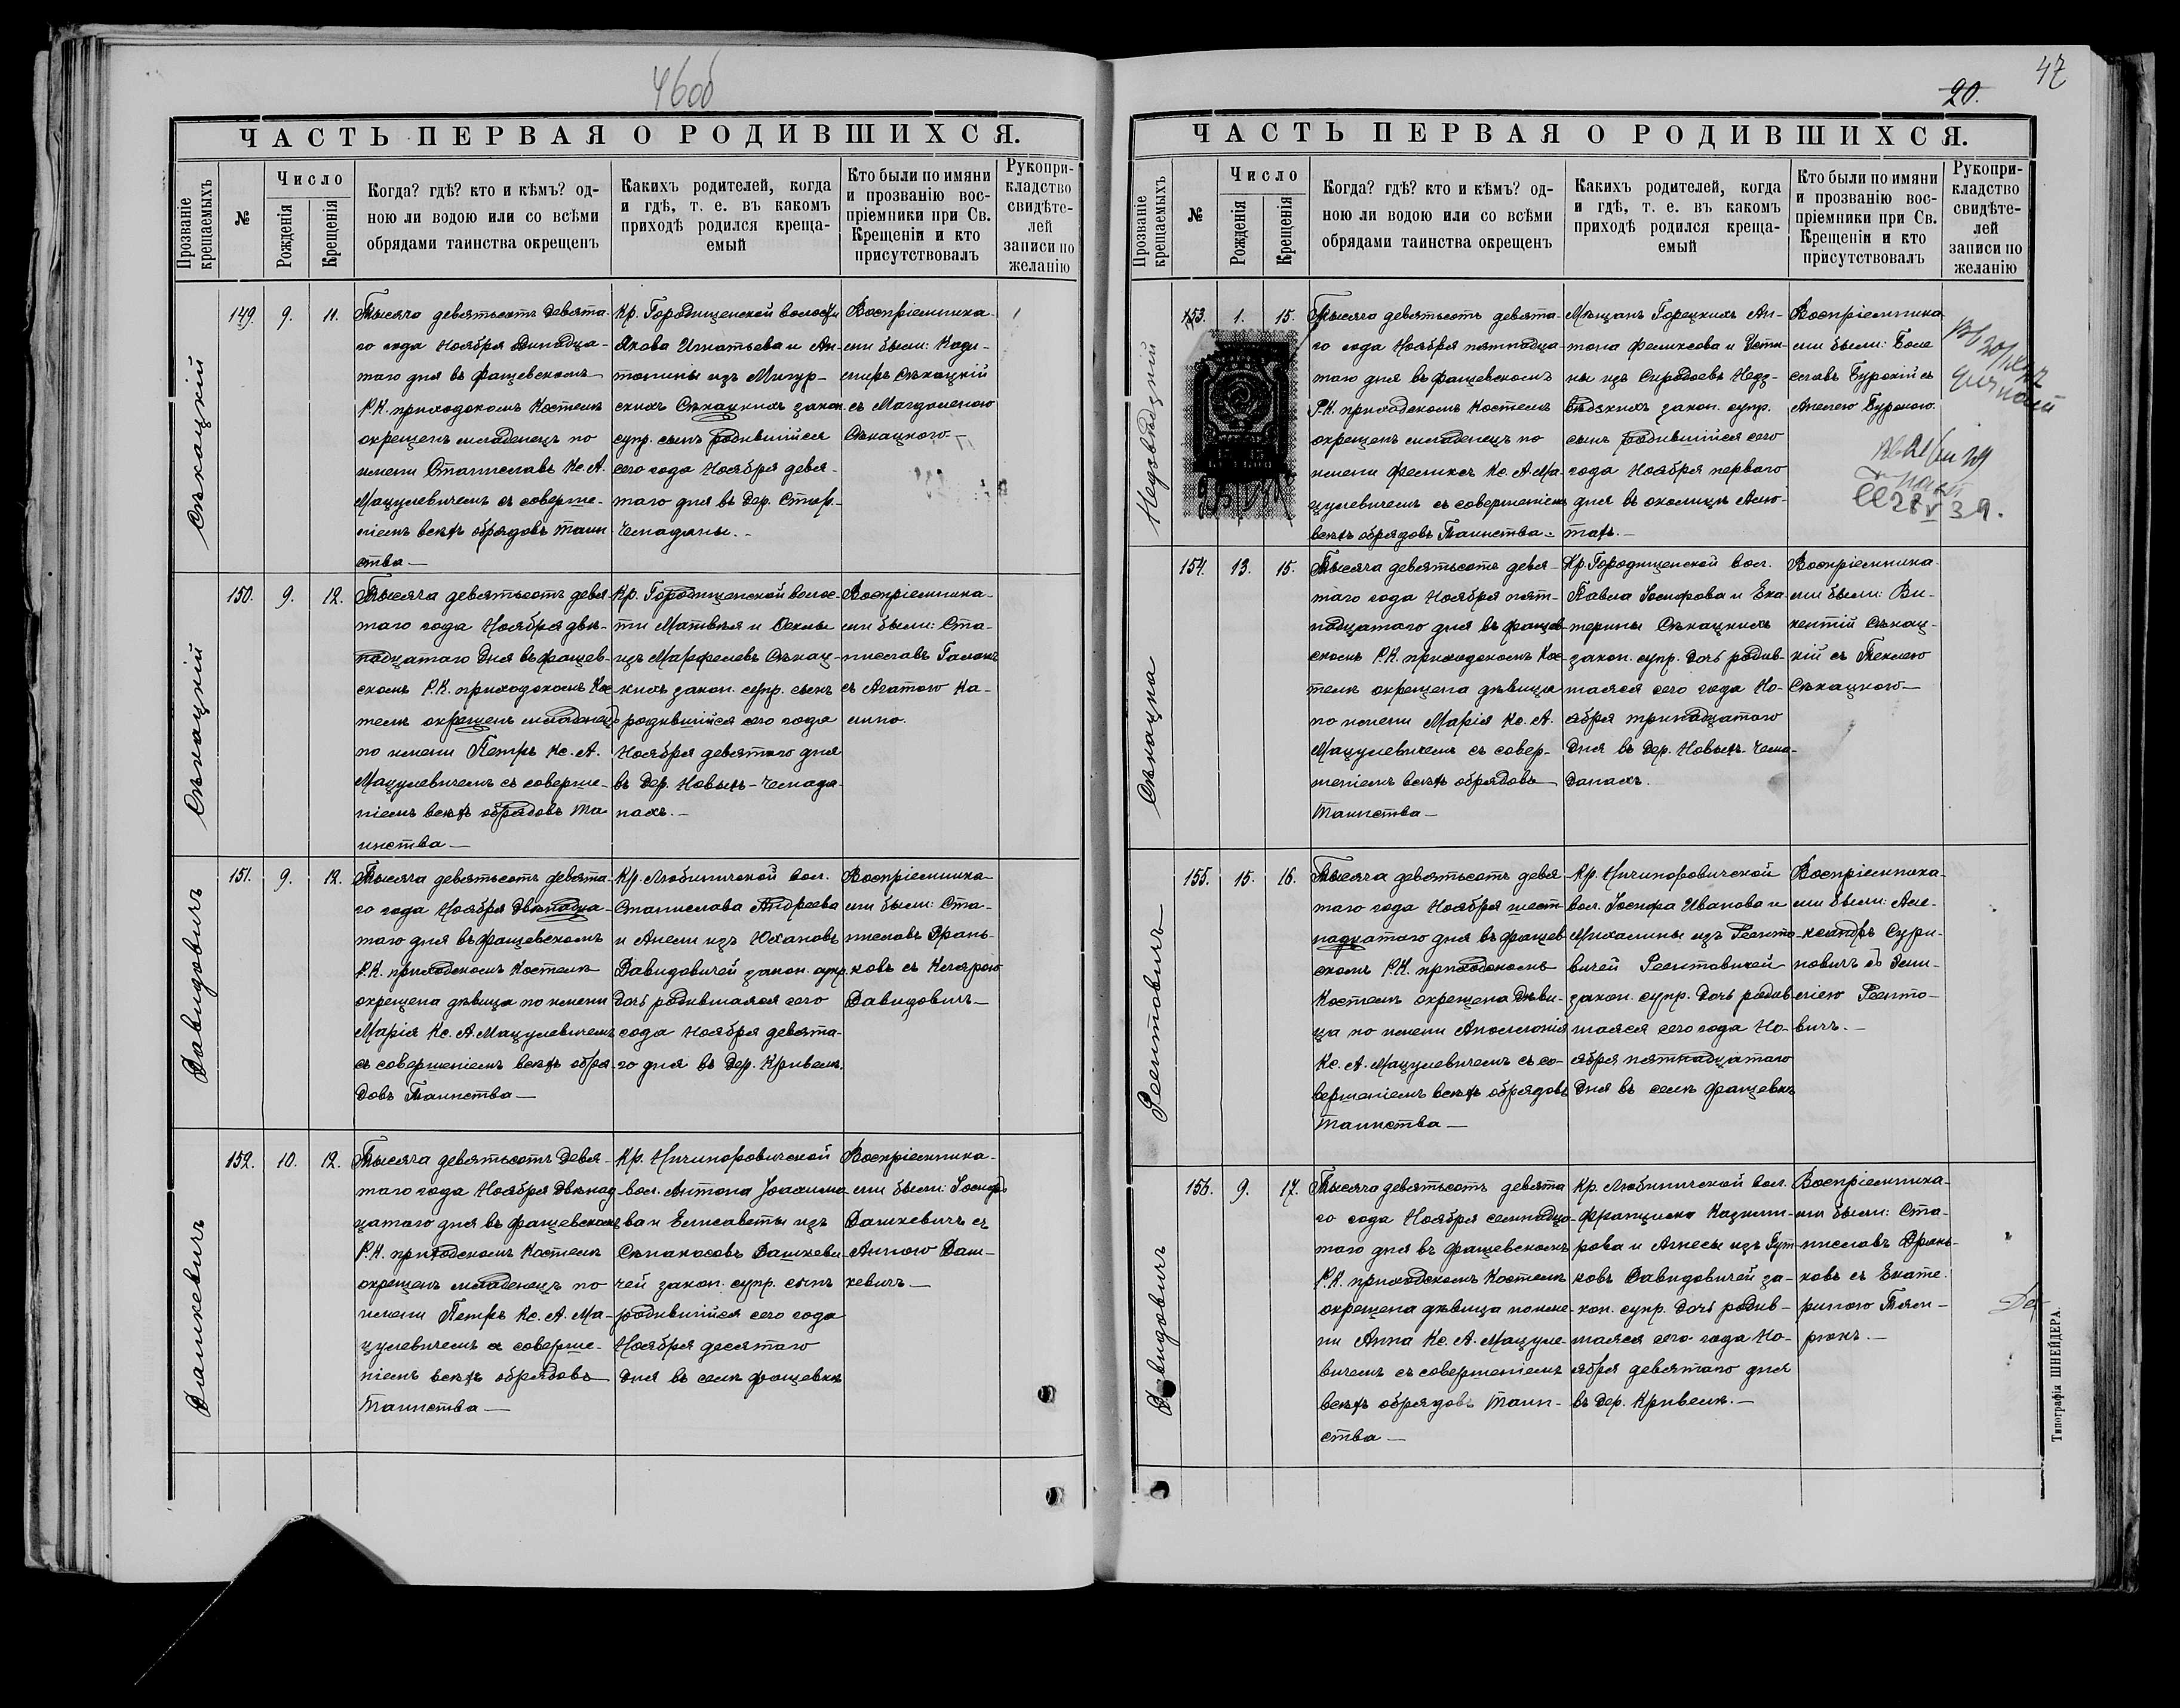 46об
ЧАСТЬ ПЕРВАЯ О РОДИВШИХСЯ.
Прозваніе крещаемыхъ
№
Число
Рожденія
Крещенія
Когда? гдѣ? кто и кѣмъ? од-
ною ли водою или со всѣми
обрядами таинства окрещенъ
Какихъ родителей, когда
и гдѣ, т. е. въ какомъ
приходѣ родился креща-
емый
Кто были по имяни
и прозванію вос-
пріемники при Св.
Крещеніи и кто
присутствовалъ
Рукопри-
кладство
свидѣте-
лей
записи по
желанію
Сѣкацкій
149. 9. 11.
Тысяча девятьсотъ девята-
го года Ноября одинадца-
таго дня въ Фащевскомъ
Р.К. приходскомъ Костелѣ
окрещенъ младенецъ по
имени Станиславъ Кс. А.
Мацулевичемъ съ соверше-
ніемъ всѣхъ обрядовъ таин-
ства —
Кр. Городищенской волости
Якова Игнатьева и Ан-
тонины изъ Мигур-
скихъ Сѣкацкихъ закон.
супр. сынъ родившійся
сего года Ноября девя-
таго дня въ дер. Стар.-
Чемаданы. -
Воспріемника-
ми были: Кази-
миръ Сѣкацкій
съ Магдаленою
Сѣкацкою —
Сѣкацкій
150. 9. 12.
Тысяча девятьсотъ девя-
таго года Ноября двѣ-
надцатаго дня въ Фащев-
скомъ Р.К. приходскомъ Кос-
телѣ окрещенъ младенецъ
по имени Петръ Кс. А.
Мацулевичемъ съ соверше-
ніемъ всѣхъ обрядовъ Та-
инства —
Кр. Городищенской волос-
ти Матвѣя и Феклы
изъ Марфелевъ Сѣкац-
кихъ закон. супр. сынъ
родившійся сего года
Ноября девятаго дня
въ дер. Новыхъ-Чемада-
нахъ. -
Воспріемника-
ми были: Ста-
ниславъ Галонъ
съ Агатою Ка-
Давидовичъ
151. 9. 12.
Тысяча девятьсотъ девята-
го года Ноября двѣнадца-
таго дня въ Фащевскомъ
Р.К. приходскомъ Костелѣ
окрещена дѣвица по имени
Марія Кс. А. Мацулевичемъ
съ совершеніемъ всѣхъ обря-
довъ Таинства —
Кр. Любиничской вол.
Станислава Андреева
и Анели изъ Юхановъ
Давидовичей закон. супр.
дочь родившаяся сего
года Ноября девята-
го дня въ дер. Кривелѣ.
Воспріемника-
ми были: Ста-
ниславъ Дрань-
ковъ съ Клярою
Давидовичъ —
Дашкевичъ
152. 10. 12.
Тысяча девятьсотъ девя-
таго года Ноября двѣнад-
цатаго дня въ Фащевскомъ
Р.К. приходскомъ Костелѣ
окрещенъ младенецъ по
имени Петръ Кс. А. Ма-
цулевичемъ съ соверше-
ніемъ всѣхъ обрядовъ
Таинства —
Кр. Ничипоровичской
вол. Антона Іоахимо-
ва и Елисаветы изъ
Сѣнакосовъ Дашкеви-
чей закон. супр. сынъ
родившійся сего года
Ноября десятаго
дня въ селѣ Фащевкѣ
Воспріемника-
ми были: Іосифъ
Дашкевичъ съ
Анною Даш-
кевичъ —
47
20.
ЧАСТЬ ПЕРВАЯ О РОДИВШИХСЯ.
Прозваніе крещаемыхъ
№
Число
Рожденія
Крещенія
Когда? гдѣ? кто и кѣмъ? од-
ною ли водою или со всѣми
обрядами таинства окрещенъ
Какихъ родителей, когда
и гдѣ, т. е. въ какомъ
приходѣ родился креща-
емый
Кто были по имяни
и прозванію вос-
пріемники при Св.
Крещеніи и кто
присутствовалъ
Рукопри-
кладство
свидѣте-
лей
записи по
желанію
Недзвѣдзкій
153. 1. 15.
Тысяча девятьсотъ девята-
го года Ноября пятнадца-
таго дня въ Фащевскомъ
Р.К. приходскомъ Костелѣ
окрещенъ младенецъ по
имени Феликсъ Кс. А. Ма-
цулевичемъ съ совершеніемъ
всѣхъ обрядовъ Таинства. -
Мѣщанъ Горецкихъ Ан-
тона Феликсова и Усти-
ны изъ Недз-
вѣдзкихъ закон. супр.
сынъ родившійся сего
года Ноября перваго
дня въ околицѣ
Воспріемника-
ми были: Боле-
славъ Бурскій съ
Анелею Бурскою.
28 V 39.
Сѣкацка
154. 13. 15.
Тысяча девятьсотъ девя-
таго года Ноября пят-
надцатаго дня въ Фащев-
скомъ Р.К. приходскомъ Кос-
телѣ окрещена дѣвица
по имени Марія Кс. А.
Мацулевичемъ съ совер-
шеніемъ всѣхъ обрядовъ
Таинства —
Кр. Городищенской вол.
Павла Іосифова и Ека-
терины Сѣкацкихъ
закон. супр. дочь родив-
шаяся сего года Но-
ября тринадцатаго
дня въ дер. Новыхъ-Чема-
данахъ.
Воспріемника-
ми были: Ви-
кентій Сѣкац-
кій съ Теклею
Сѣкацкою —
Реентовичъ
155. 15. 16.
Тысяча девятьсотъ девя-
таго года Ноября шест-
надцатаго дня въ Фащев-
скомъ Р.К. приходскомъ
Костелѣ окрещена дѣви-
ца по имени Аполлонія
Кс. А. Мацулевичемъ съ со-
вершеніемъ всѣхъ обрядовъ
Таинства —
Кр. Ничипоровичской
вол. Іосифа Иванова и
Михалины изъ Реенто-
вичей Реентовичей
закон. супр. дочь родив-
шаяся сего года Но-
ября пятнадцатаго
дня въ селѣ Фащевкѣ
Воспріемника-
ми были: Але-
ксандръ Сури-
новичъ съ Эми-
ліею Реенто-
вичъ. —
Давидовичъ
156. 9. 17.
Тысяча девятьсотъ девята-
го года Ноября семнадца-
таго дня въ Фащевскомъ
Р.К. приходскомъ Костелѣ
окрещена дѣвица по име-
ни Анна Кс. А. Мацуле-
вичемъ съ совершеніемъ
всѣхъ обрядовъ Таин-
ства —
Кр. Любиничской вол.
Франциска Казими-
рова и Агнесы изъ Гут-
ковъ Давидовичей за-
кон. супр. дочь родив-
шаяся сего года Но-
ября девятаго дня
въ дер. Кривелѣ. —
Воспріемника-
ми были: Ста-
ниславъ Драньковъ съ Екате-
риною Тям-
рюкъ. —
Типографія ШНЕЙДЕРА.